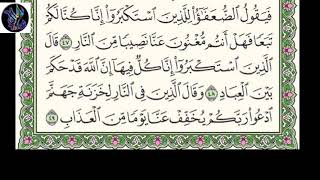 فَيَقُولُ ٱلضُّعَفَٰٓؤُا۟ لِلَّذِينَ ٱسْتَكْبَرُوٓا۟ إِنَّا كُنَّا لَكُمْ
تَبَعًا فَهَلْ أَنتُم مُّغْنُونَ عَنَّا نَصِيبًا مِّنَ ٱلنَّارِ ٤٧ قَالَ
ٱلَّذِينَ ٱسْتَكْبَرُوٓا۟ إِنَّا كُلٌّ فِيهَآ إِنَّ ٱللَّهَ قَدْ حَكَمَ
بَيْنَ ٱلْعِبَادِ ٤٨ وَقَالَ ٱلَّذِينَ فِى ٱلنَّارِ لِخَزَنَةِ جَهَنَّمَ
ٱدْعُوا۟ رَبَّكُمْ يُخَفِّفْ عَنَّا يَوْمًا مِّنَ ٱلْعَذَابِ ٤٩